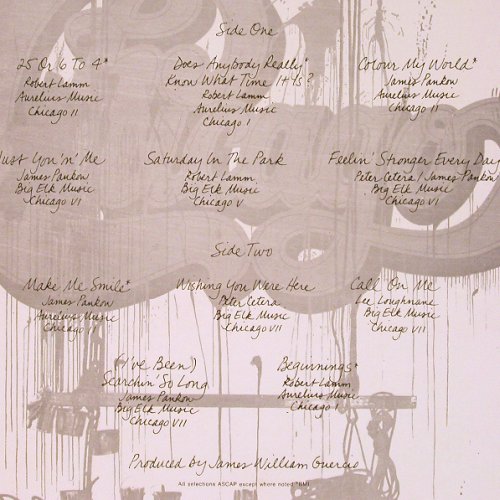 Side One
25 Or 6 To 4*
Robert Lamm
Aurelius Music
Chicago II
Does Anybody Really*
Know What Time It Is?
Robert Lamm
Aurelius Music
Chicago I
Colour My World*
James Pankow
Aurelius Music
Chicago II
Just You 'n' Me
James Pankow
Big Elk Music
Chicago VI
Saturday In The Park
Robert Lamm
Big Elk Music
Chicago V
Feelin' Stronger Every Day
Peter Cetera / James Pankow
Big Elk Music
Chicago VI
Side Two
Make Me Smile*
James Pankow
Aurelius Music
Chicago II
Wishing You Were Here
Peter Cetera
Big Elk Music
Chicago VII
Call On Me
Lee Loughnane
Big Elk Music
Chicago VII
(I've Been)
Searchin' So Long
James Pankow
Big Elk Music
Chicago VII
Beginnings*
Robert Lamm
Aurelius Music
Chicago I
Produced by James William Guercio
All selections ASCAP except where noted *BMI